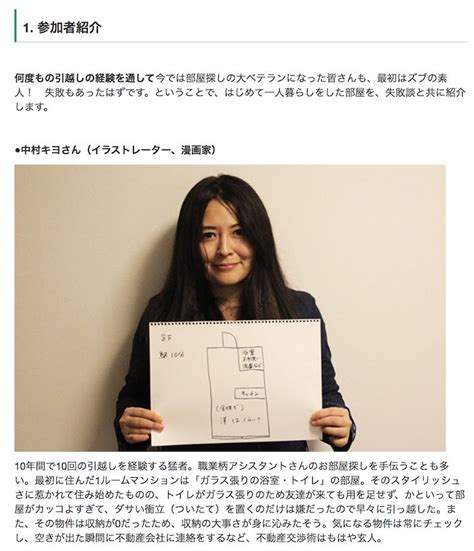 1. 参加者紹介
何度もの引越しの経験を通して今では部屋探しの大ベテランになった皆さんも、最初はズブの素
人！　失敗もあったはずです。ということで、はじめて一人暮らしをした部屋を、失敗談と共に紹介
します。
●中村キヨさん（イラストレーター、漫画家）
駅10分
浴室
キッチン
10年間で10回の引越しを経験する猛者。職業柄アシスタントさんのお部屋探しを手伝うことも多
い。最初に住んだ1ルームマンションは「ガラス張りの浴室・トイレ」の部屋。そのスタイリッシュ
さに惹かれて住み始めたものの、トイレがガラス張りのため友達が来ても用を足せず、かといって部
屋がカッコよすぎて、ダサい衝立（ついたて）を置くのだけは嫌だったので早々に引っ越した。ま
た、その物件は収納が0だったため、収納の大事さが身に沁みたそう。気になる物件は常にチェック
し、空きが出た瞬間に不動産会社に連絡をするなど、不動産交渉術はもはや玄人。